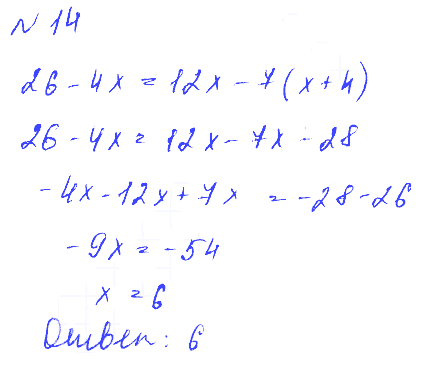 № 14
26 - 4x = 12x - 7(x + 4)
26 - 4x = 12x - 7x - 28
-4x - 12x + 7x = -28 - 26
-9x = -54
x = 6
Ответ: 6